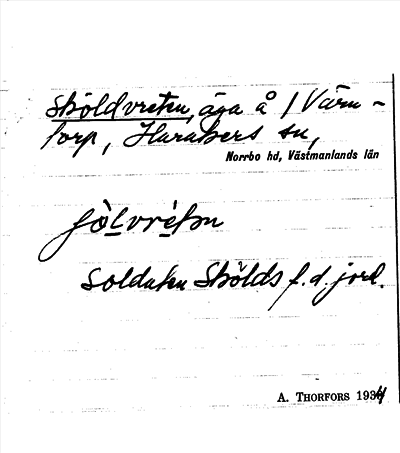 Sköldvreten, äga å 1 Värm-
torp, Harakers sn,
Norrbo hd, Västmanlands län
ſò̀lvrètən
Soldaten Skölds f.d. jord.
A. THORFORS 1934